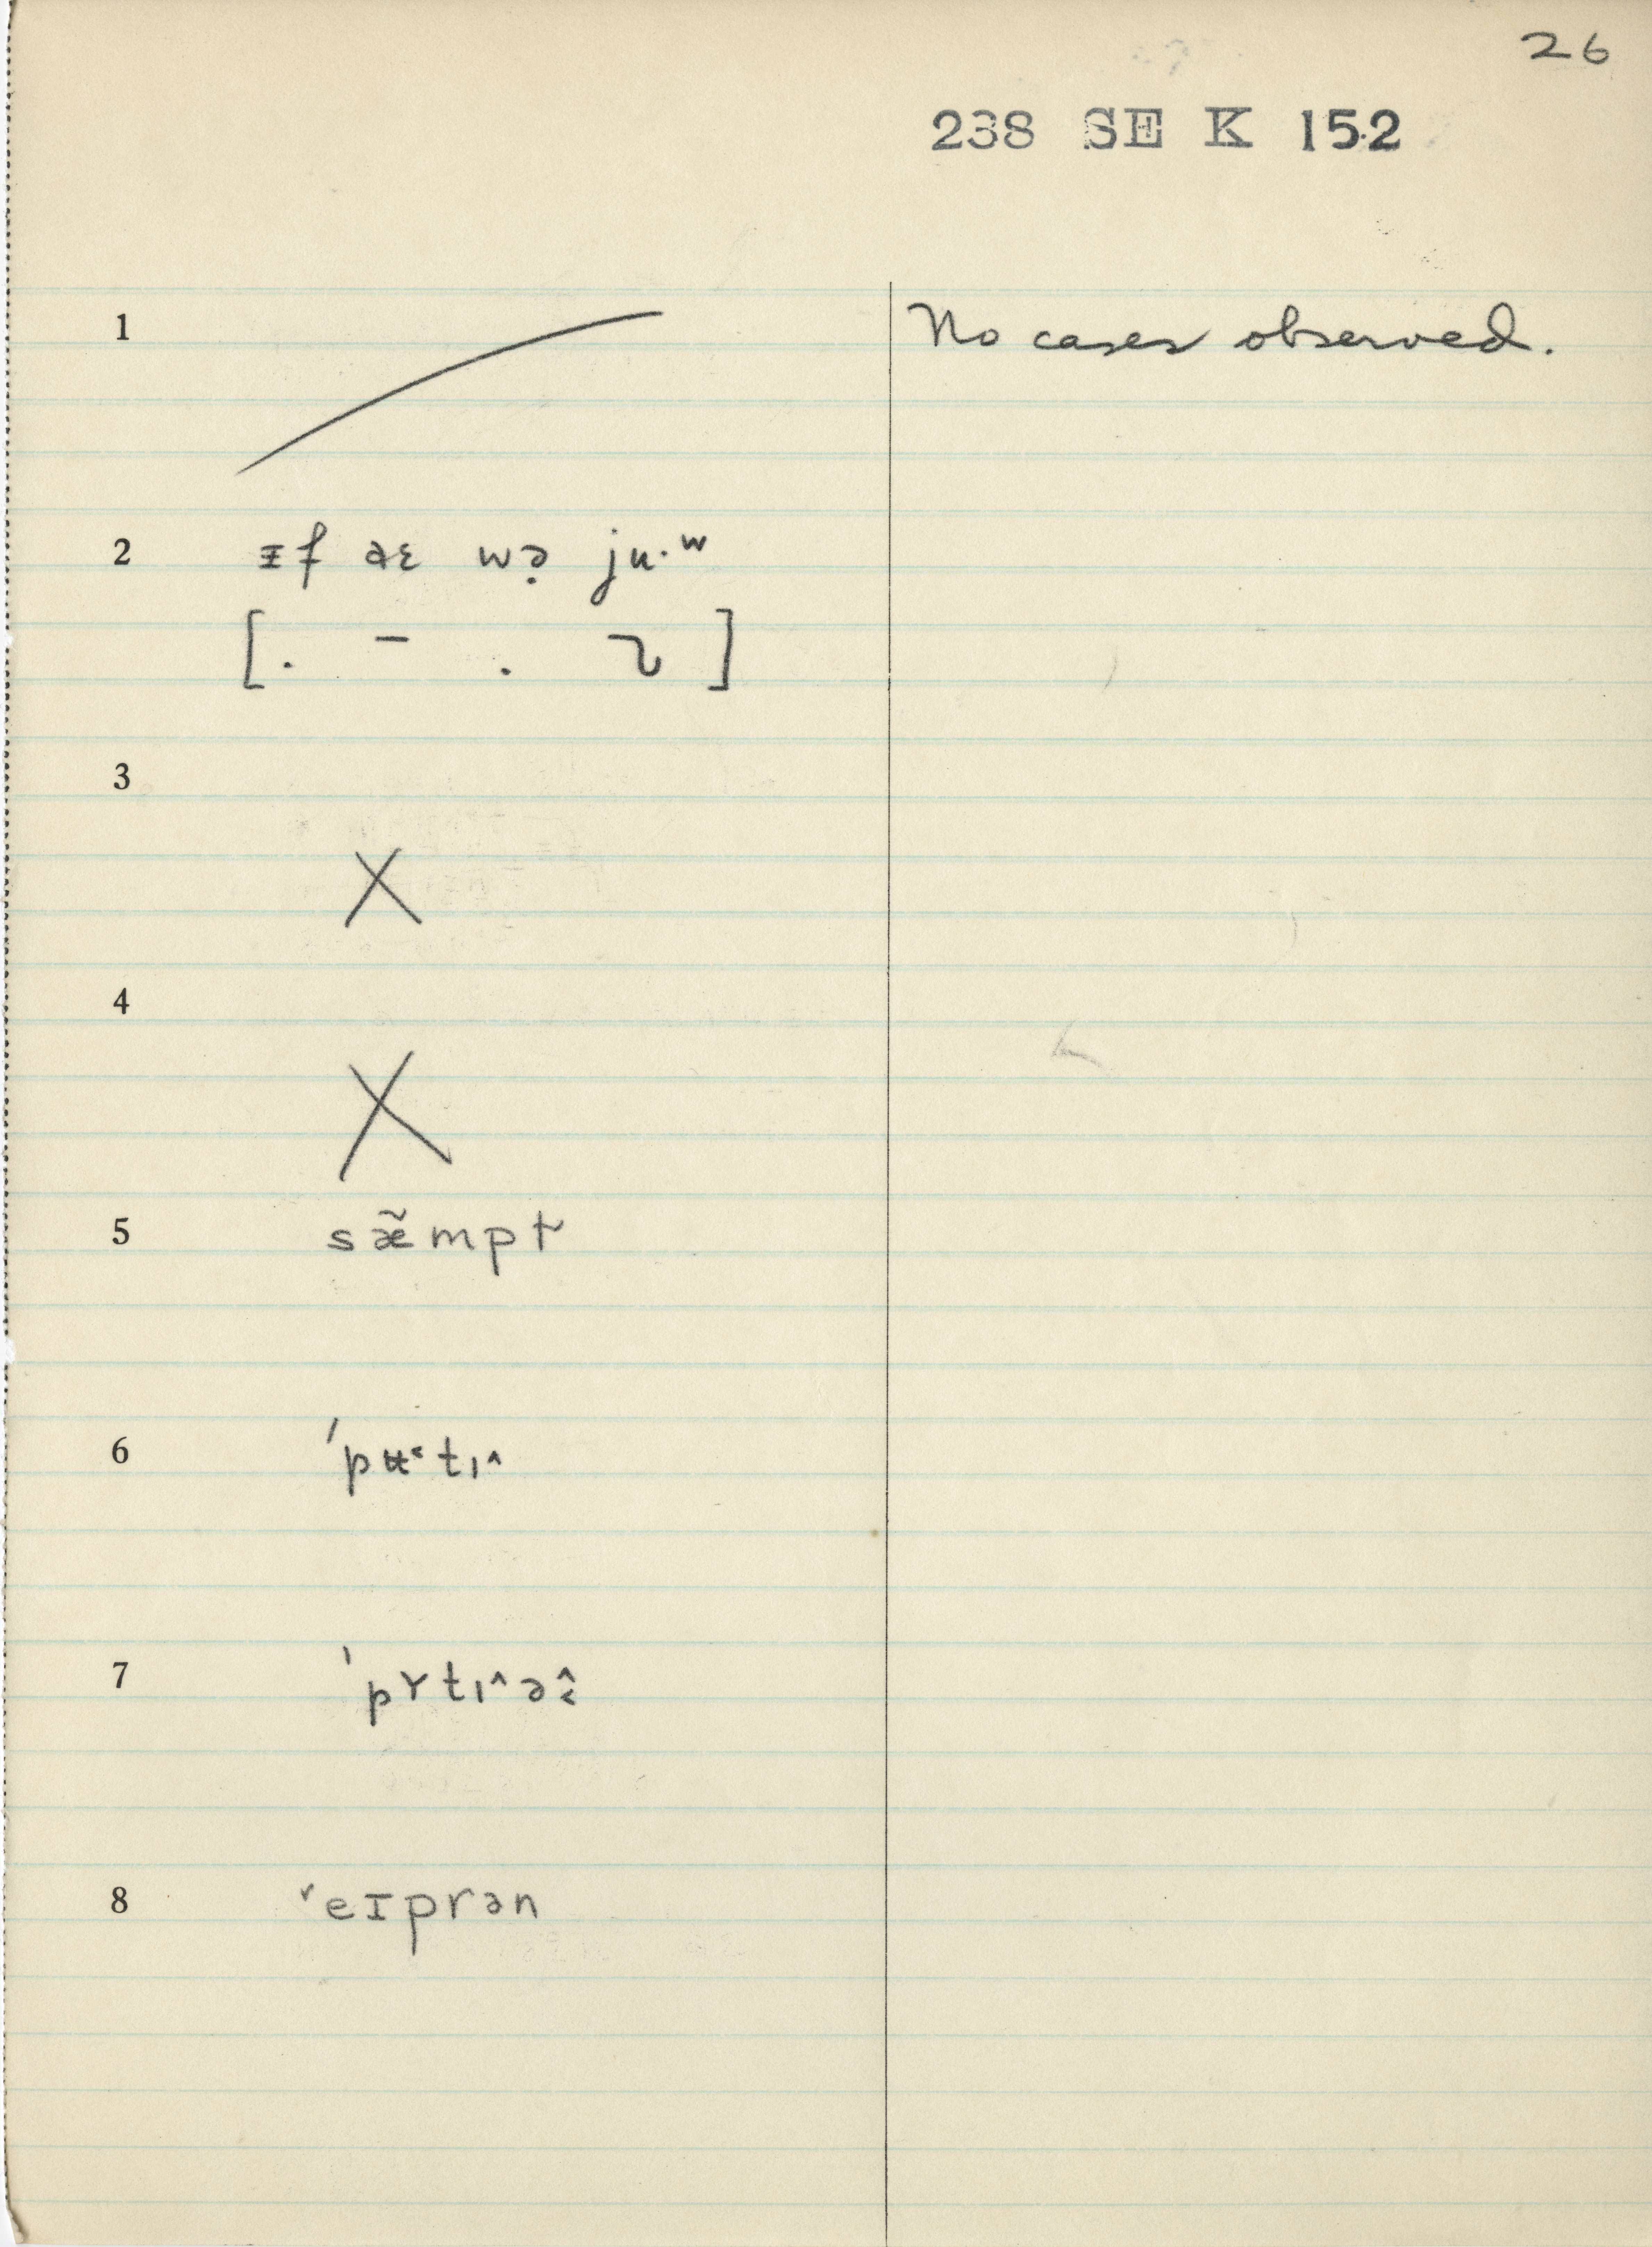 26
238 SE K 152
1 No cases observed.
2 ᵻf aɛ wə̣ ju·ʷ
[. – . ]
3
X
4
X
5 sæ̃mpt
6 ˈpʉ˂tɪ˄
7 ˈpʏtɪ˄ə
8 ˈeɪprən